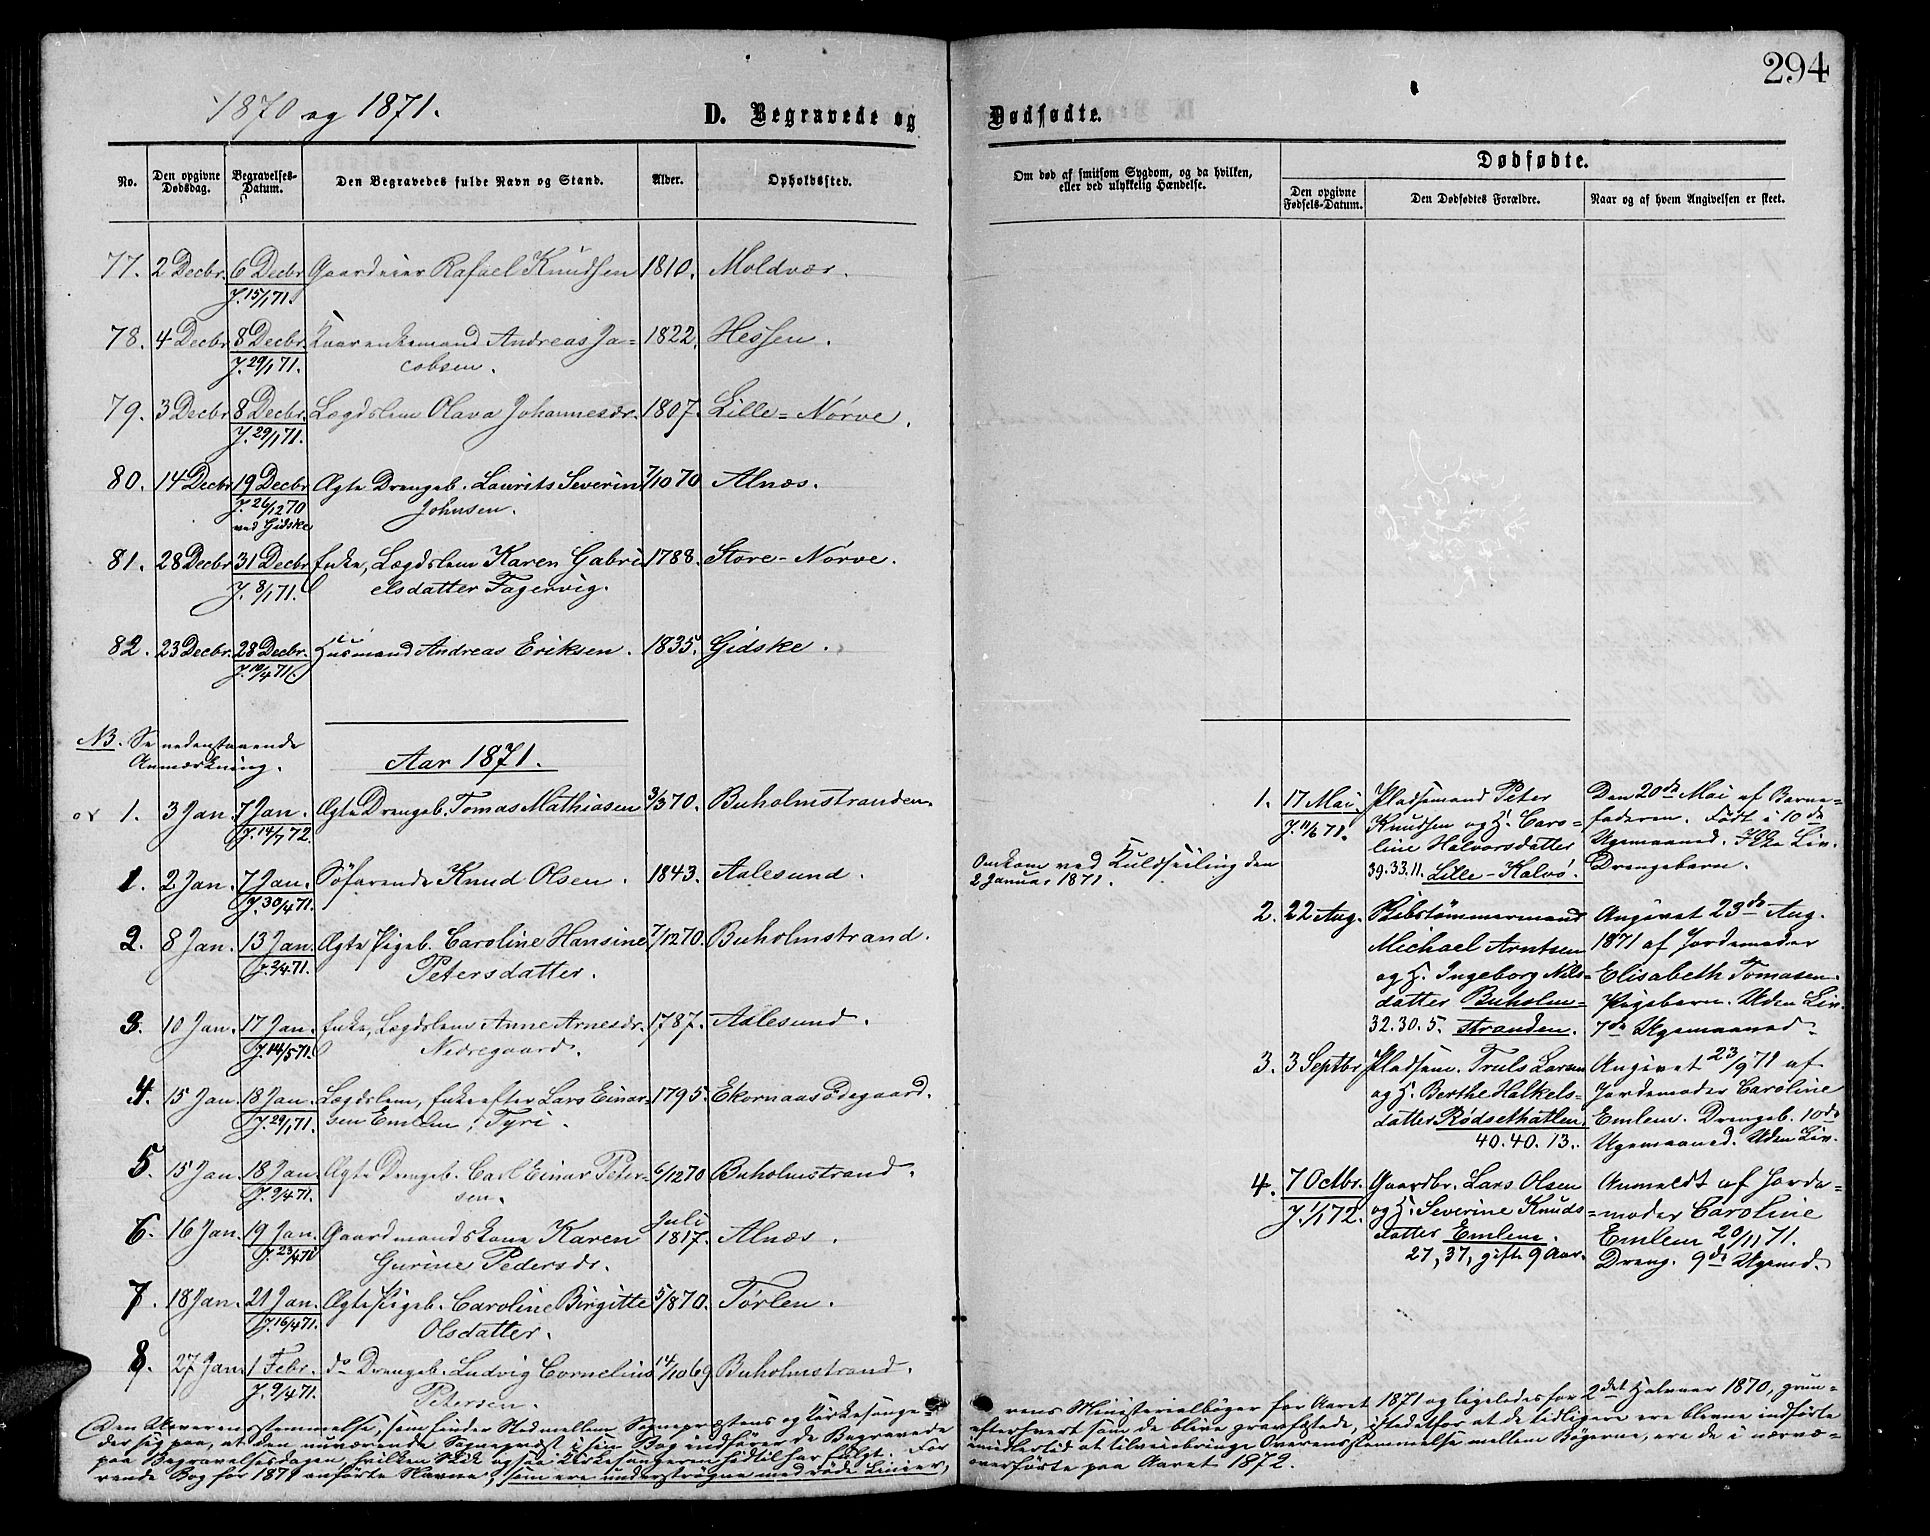 294
1870 og 1871.
D. Begravede og
Dødfødte.
No.
Den opgivne Dødsdag.
Begravelses-Datum.
Den Begravedes fulde Navn og Stand.
Alder.
Opholdssted.
Om død af smitsom Sygdom, og da hvilken, eller ved ulykkelig Hændelse.
Dødfødte.
Den opgivne Fødsels-Datum.
Den Dødfødtes Forældre.
Naar og af hvem Angivelsen er skeet.
77. 2 Decbr. 6 Decbr Gaardeier Rafael Knudsen 1810. Moldvær.
J. 15/1 71.
78. 4 Decbr 8 Decbr. Kaarenkemand Andreas Ja- 1822. Hessen.
J. 29/1 71. cobsen.
79. 3 Decbr 8 Decbr. Lægdslem Olava Johannesdr. 1807. Lille-Nørve.
J. 29/1 71.
80. 14 Decbr 19 Decbr. Ægte Drengeb. Laurits Severin 7/10 70 Alnæs.
J. 26/12 70 Johnsen.
ved Gidske
81. 28 Decbr 31 Decbr. Enke, Lægdslem Karen Gabri 1788. Store-Nørve.
J. 8/1 71. elsdatter Fagervig.
82. 23 Decbr. 28 Decbr. Husmand Andreas Eriksen. 1835. Gidske.
J. 10/4 71.
NB. Se nedenstaaende
Anmærkning.
Aar 1871.
1. 3 Jan. 7 Jan. Ægte Drengeb. Tomas Mathiasen 3/3 70. Buholmstranden.
J. 14/7 72
1. 2 Jan. 7 Jan. Søfarende Knud Olsen. 1843. Aalesund.
J. 30/4 71.
Omkom ved Kuldseiling den
2 Januar 1871.
2. 8 Jan. 13 Jan. Ægte Pigeb. Caroline Hansine 7/12 70. Buholmstrand.
J. 2/4 71. Petersdatter.
3. 10 Jan. 17 Jan. Enke, Lægdslem Anne Arnesdr. 1787. Aalesund.
J. 14/5 71. Nedregaard.
4. 15 Jan. 18 Jan. Lægdslem, Enke efter Lars Einar- 1795. Ekornaasødegaard.
J. 29/1 71. sen Emlem, Tyri.
5. 15 Jan. 18 Jan. Ægte Drengeb. Carl Einar Peter- 6/12 70 Buholmstrand.
J. 9/4 71. sen.
6. 16 Jan. 19 Jan. Gaardmandskone Karen Juli 1817. Alnæs.
J. 23/4 71 Gurine Pedersdr.
7. 18 Jan. 21 Jan. Ægte Pigeb. Caroline Birgitte 5/8 70. Tørlen.
J. 16/4 71. Olsdatter.
8. 27 Jan. 1 Febr. do Drengeb. Ludvig Cornelius 14/10 69 Buholmstrand.
J. 9/4 71. Petersen.
1. 17 Mai Pladsemand Peter Den 20de Mai af Barne-
J. 11/6 71. Knudsen og H. Caro- faderen. Født i 10de
line Halvorsdatter Ugemaaned. Ikke Liv.
39.33.11. Lille-Kalvø. Drengebarn.
2. 22 Aug. Skibstømmermand Angivet 23de Aug.
Michael Arntsen 1871 af Jordemoder
og H. Ingeborg Nils- Elisabeth Tomasen.
datter Buholm- Pigebarn. Uden Liv.
32.30.5. stranden. 7de Ugemaaned.
3. 3 Septbr Pladsem. Truls Larsen Angivet 23/9 71 af
og H. Berthe Helkels- Jordemoder Caroline
datter Rødsethatlen. Emlem. Drengeb. 10de
40.40.13. Ugemaaned. Uden Liv.
4. 7 Octbr. Gaardbr. Lars Olsen Anmeldt af Jorde-
J. 1/1 72. og H. Severine Knuds- moder Caroline
datter Emlem. Emlem 20/11 71.
27, 37, gift 9 Aar. Dreng. 9de Ugemd.
Den Uoverensstemmelse, som finder Sted mellem Sognepræstens og Kirkesange-
rens Ministerialbøger for Aaret 1871 og ligeledes for 2det Halvaar 1870, grun-
der sig paa, at den nuværende Sognepræst i sin Bog indfører de Begravede
efterhvert som de blive gravfæstede, istedetfor at de tidligere ere blevne indførte
paa Begravelsesdagen, hvilken Skik ogsaa Kirkesangeren hidtil har fulgt. For
imidlertid at tilveiebringe Overensstemmelse mellem Bøgerne, ere de i nærvæ-
rende Bog for 1871 anførte Navne, som ere understrøgne med røde Linier,
overførte paa Aaret 1872.